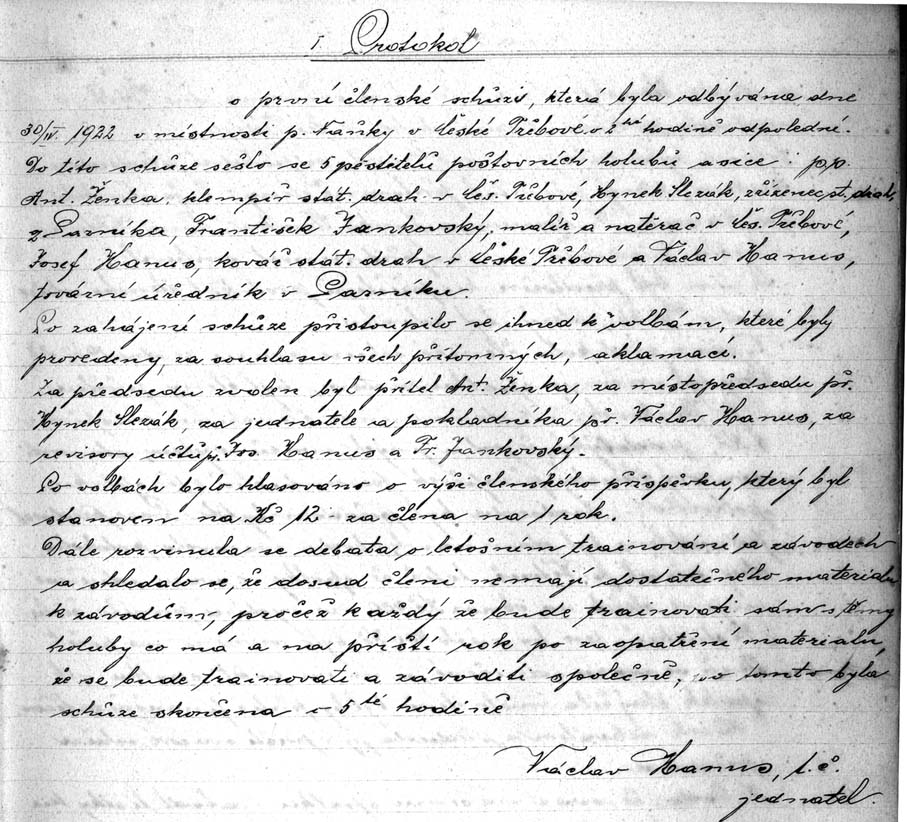 I. Protokol
o první členské schůzi, která byla odbývána dne
30/IV. 1922 v místnosti p. Faňky v České Třebové v 2 hé hodině odpolední.
Do této schůze sešlo se 5 pěstitelů poštovních holubů a sice: pp.
Ant. Ženka, klempíř stát. drah v Čes. Třebové, Hynek Slezák, zřízenec st. drah,
z Parníka, František Jankovský, malíř a natěrač v Čes. Třebové,
Josef Hanus, kovář stát. drah v České Třebové a Václav Hanus,
tovární úředník v Parníku.
Po zahájení schůze přistoupilo se ihned k volbám, které byly
provedeny, za souhlasu všech přítomných, aklamací.
Za předsedu zvolen byl přítel Ant. Ženka, za místopředsedu př.
Hynek Slezák, za jednatele a pokladníka př. Václav Hanus, za
revisory účtů př. Jos. Hanus a Fr. Jankovský.
Po volbách bylo hlasováno o výši členského příspěvku, který byl
stanoven na Kč 12 za člena na 1 rok.
Dále rozvinula se debata o letošním trainování a závodech
a shledalo se, že dosud členi nemají dostatečného materialu
k závodům, pročež každý že bude trainovati sám s těmy
holuby co má a na příští rok po zaopatření materialu,
že se bude trainovati a závoditi společně, o tomto byla
schůze skončena v 5 té hodině
Václav Hanus, t. č.
jednatel.